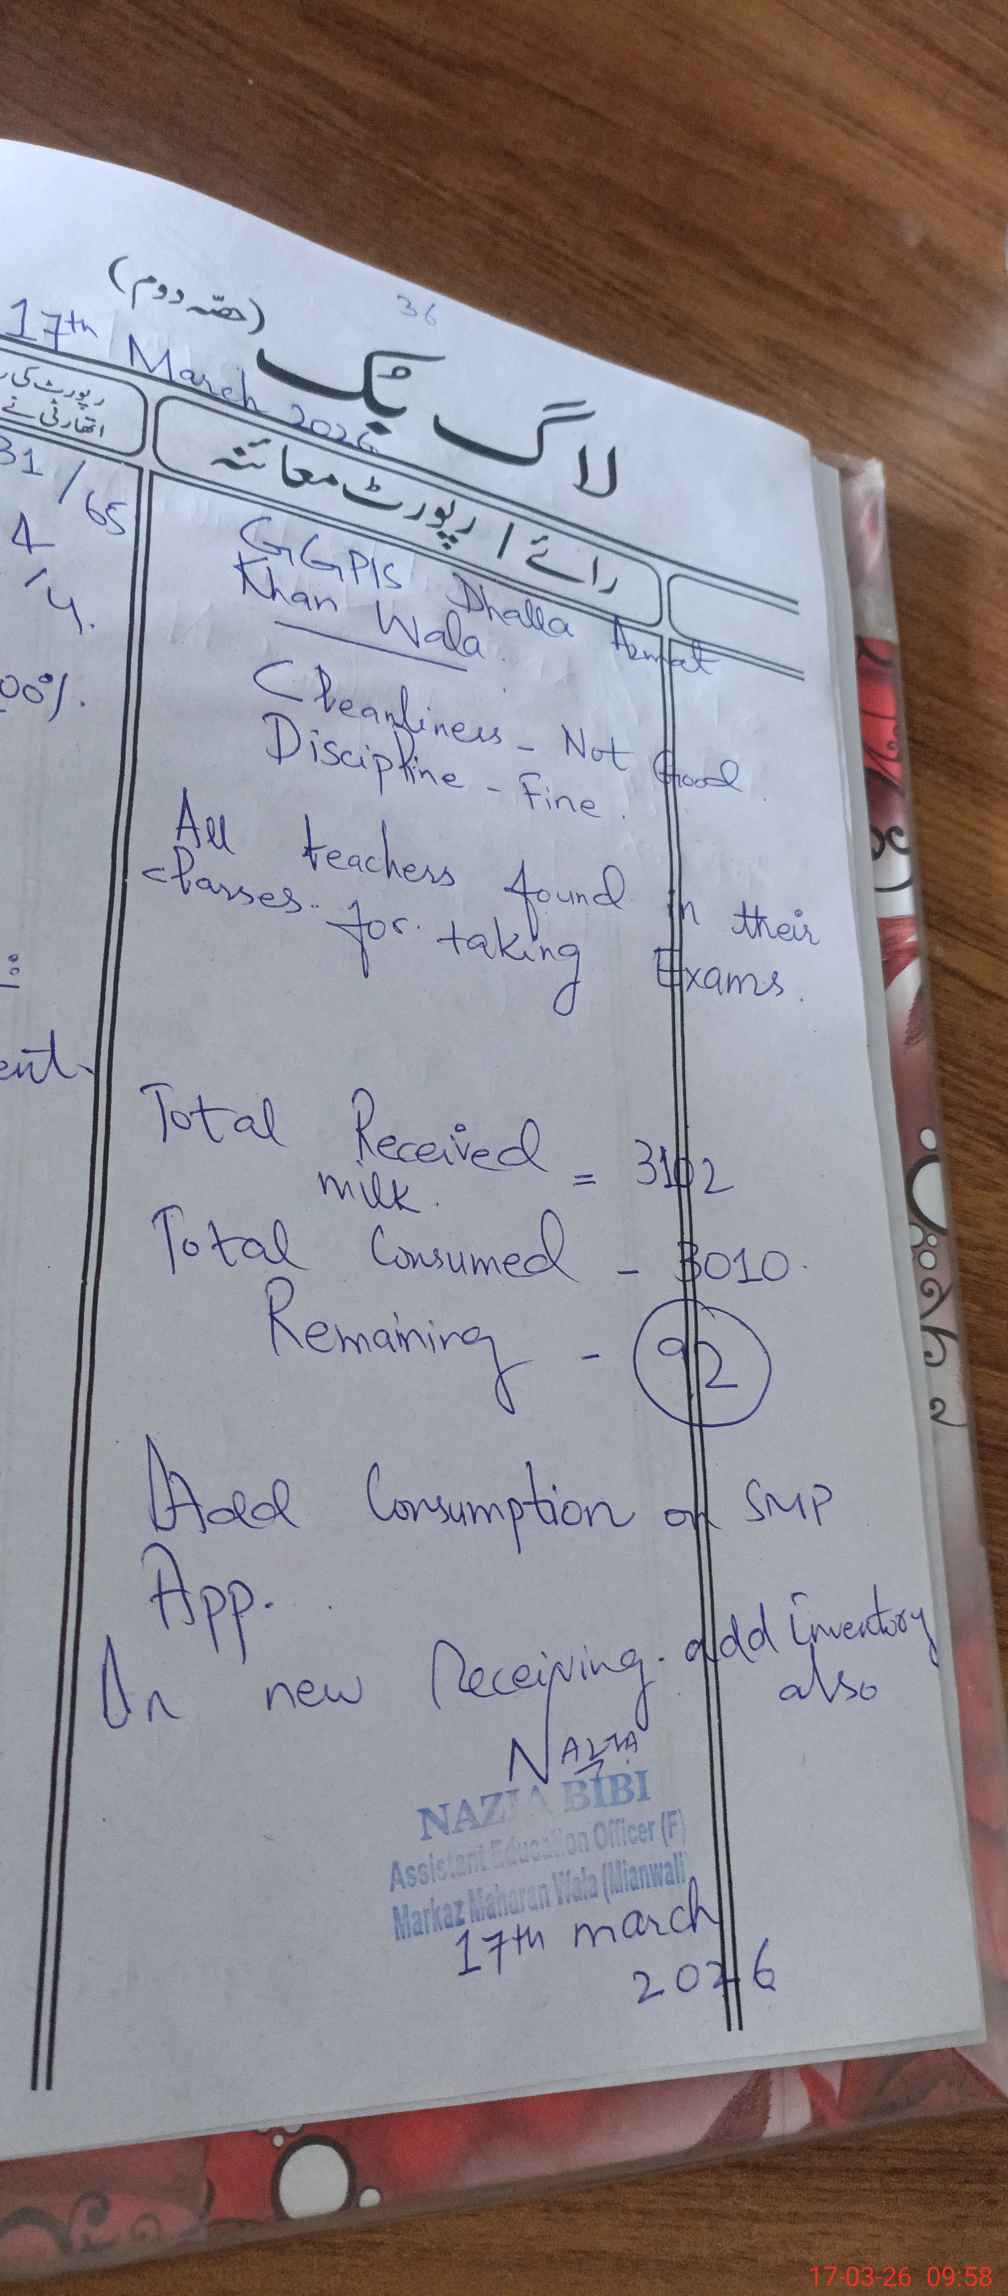 36
(حصّہ دوم)
لاگ بک
17th March 2026
رپورٹ کی
اتھارٹی نے
رائے / رپورٹ معائنہ
31/65
4
/4.
00%.
ent-
GGPIS Dhalla Azmat
Khan Wala.
Cleanliness - Not Good.
Discipline - Fine.
All teachers found in their
classes. for. taking Exams.
Total Received = 3102
milk.
Total Consumed - 3010.
Remaining - 92
Add Consumption on SMP
App.
On new Receiving. add inventory
also
NAZIA
NAZIA BIBI
Assistant Education Officer (F)
Markaz Maharan Wala (Mianwali)
17th march
2026
17-03-26 09:58